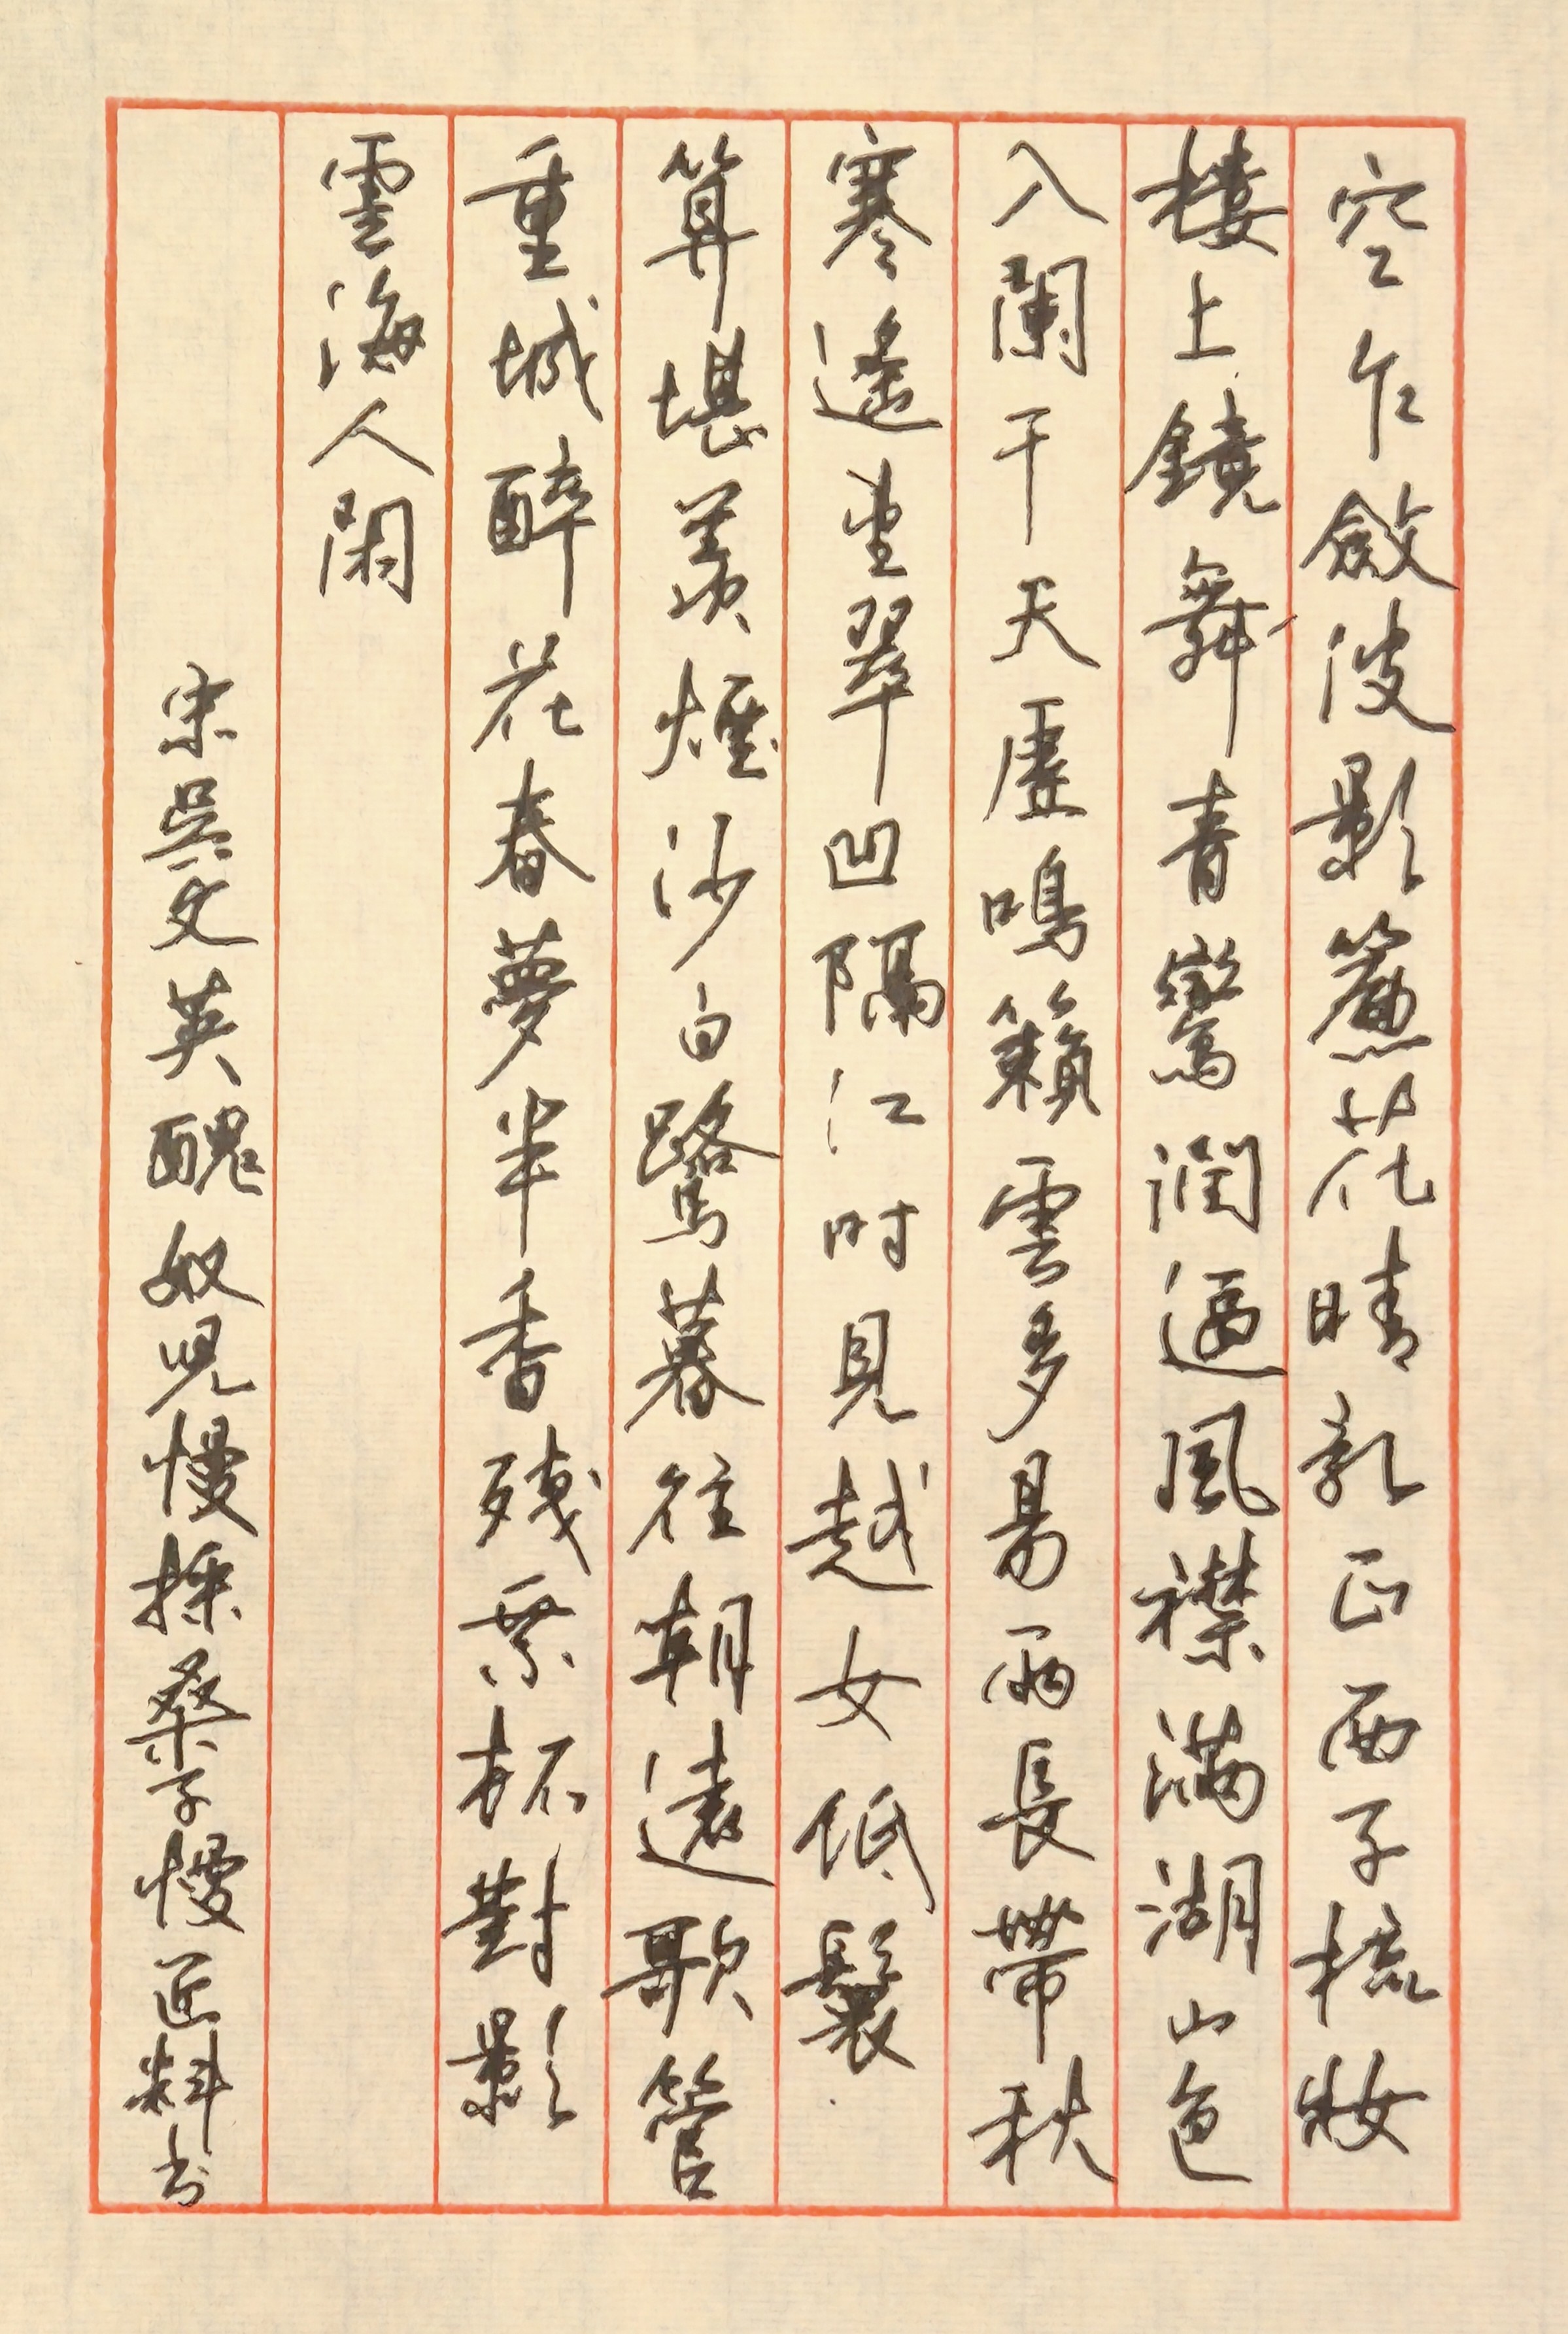 空乍斂波影簾花晴亂正西子梳妝
樓上鏡舞青鸞潤逼風襟滿湖山色
入闌干天虛鳴籟雲多易雨長帶秋
寒遙望翠凹隔江時見越女低鬟
算堪羨煙沙白鷺暮往朝還歌管
重城醉花春夢半香殘乘杯對影
雲海人閑
宋吳文英醜奴兒慢採桑子慢 料書